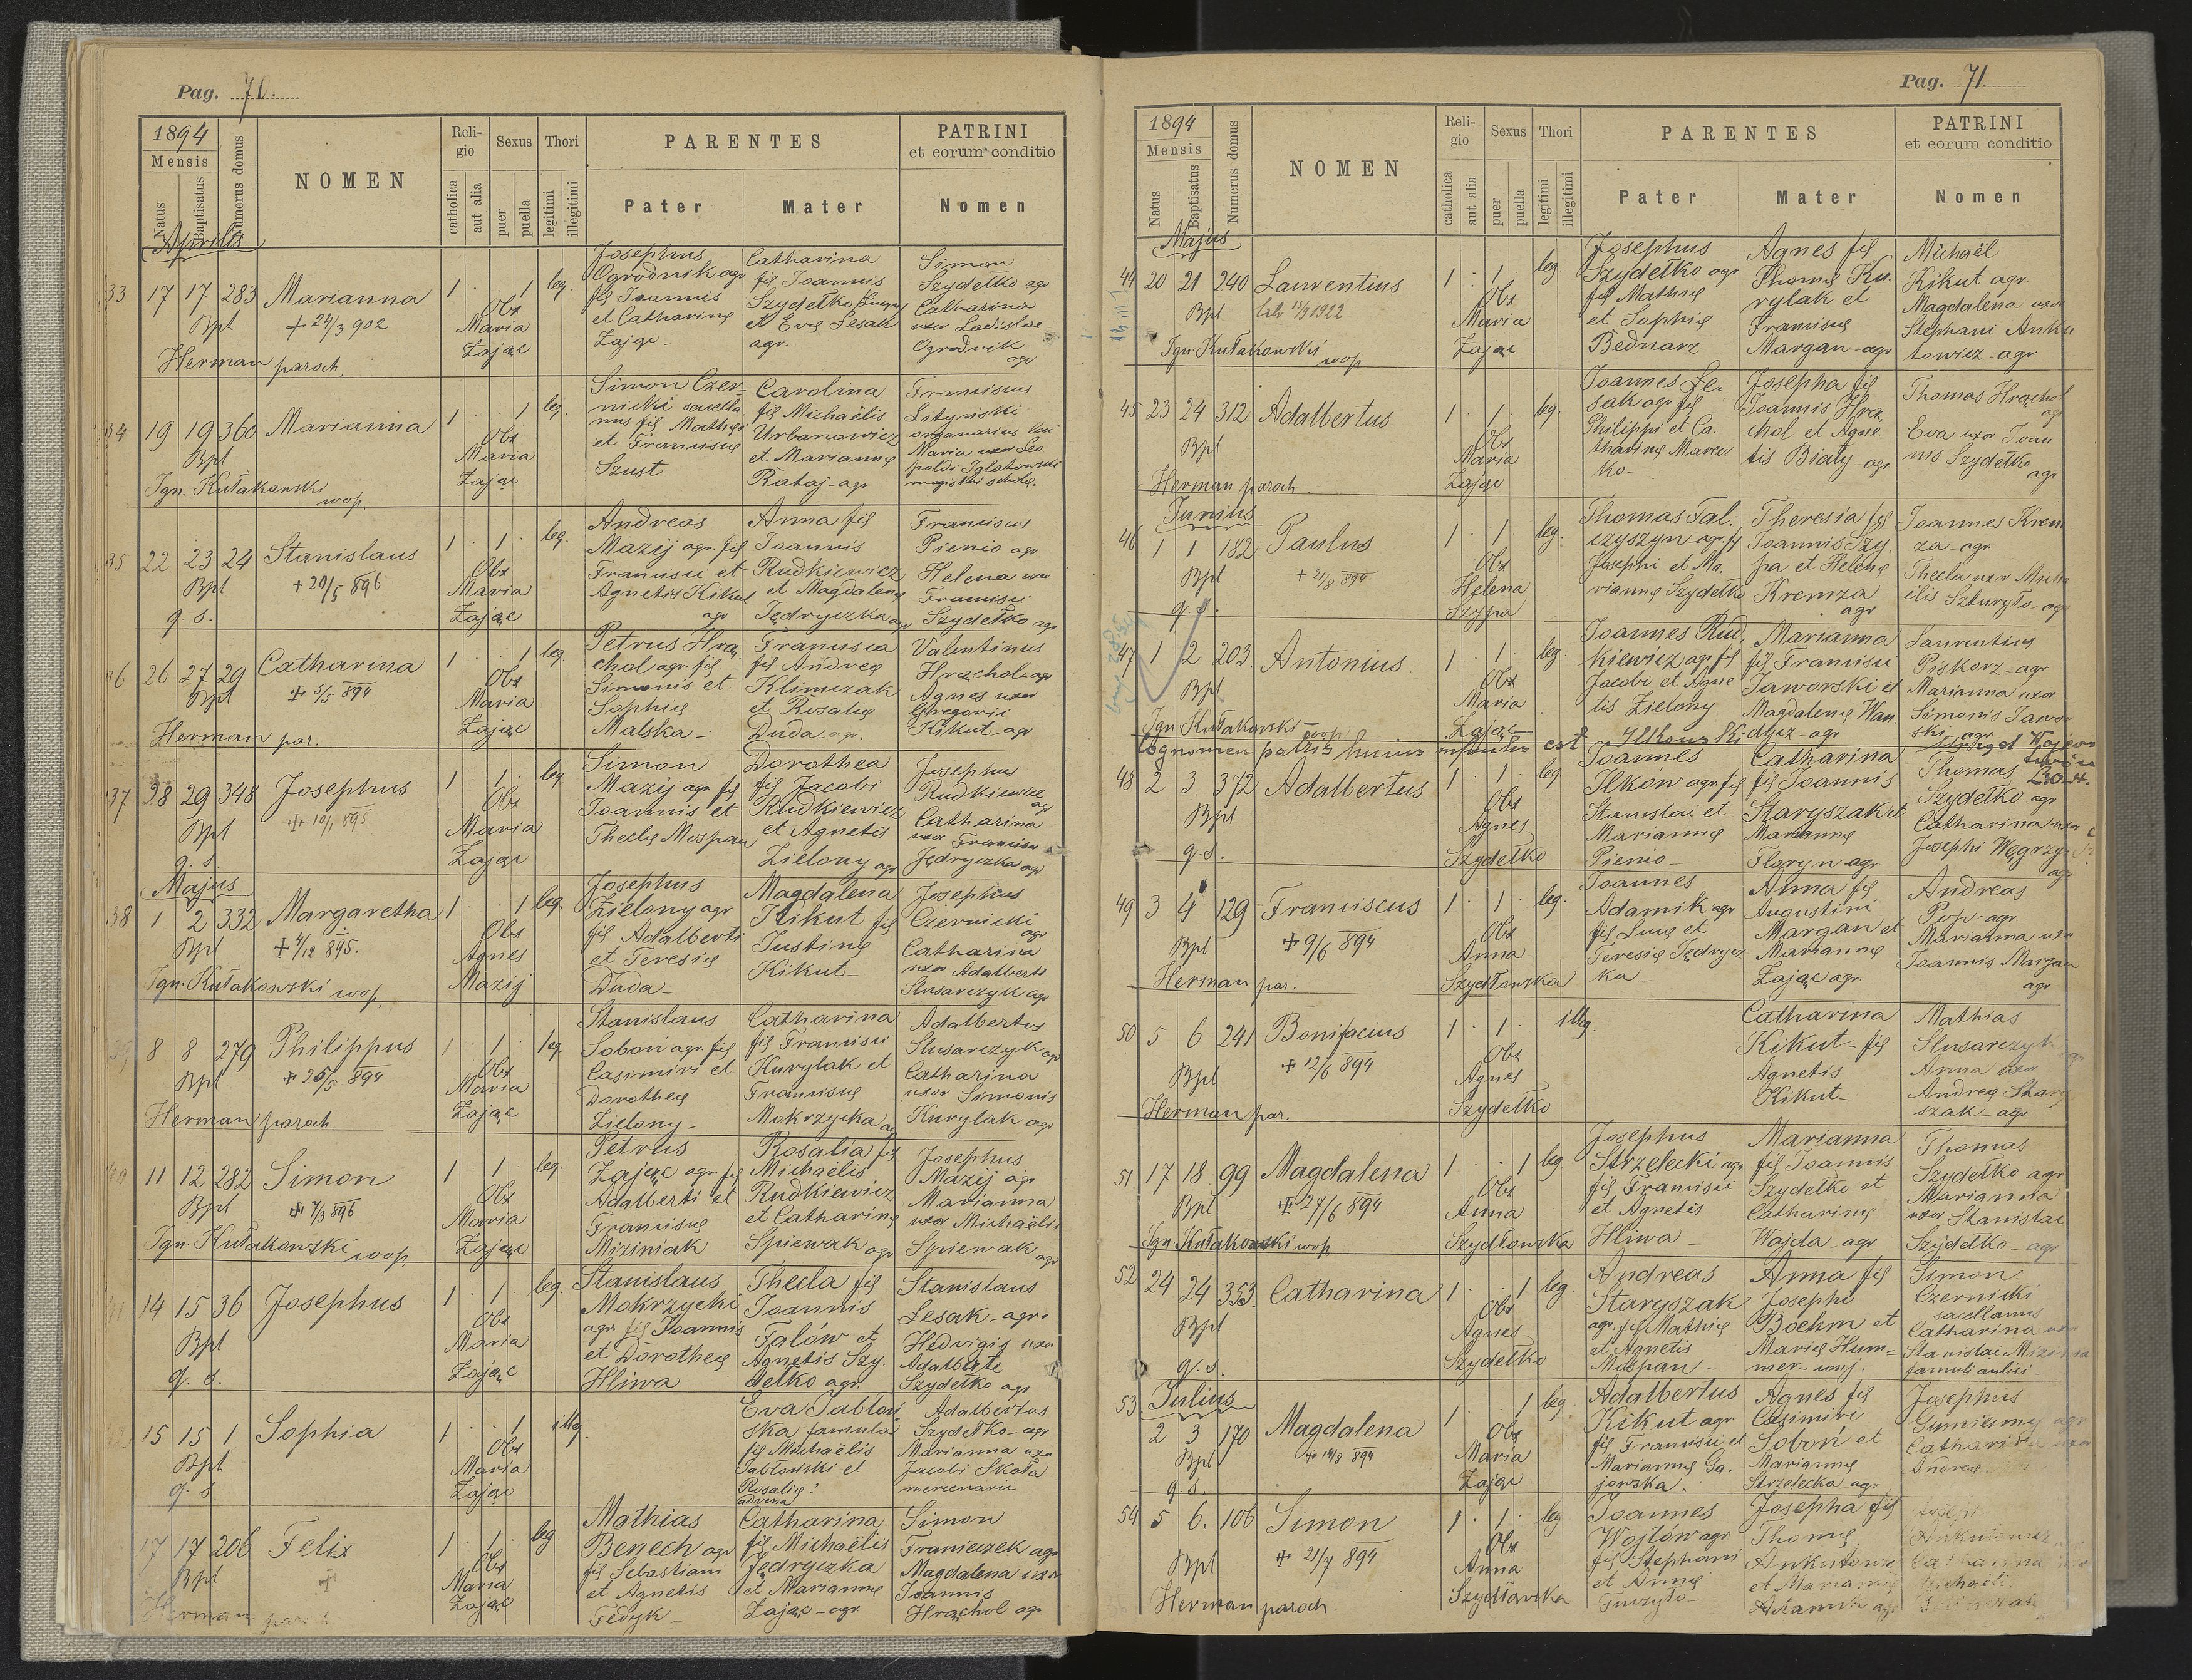 Pag. 70.
1894
Mensis
Natus
Baptisatus
Numerus domus
NOMEN
Religio
catholica
aut alia
Sexus
puer
puella
Thori
legitimi
illegitimi
PARENTES
Pater
Mater
PATRINI
et eorum conditio
Nomen
Aprilis
33 17 17 283 Marianna 1 . . 1 leg.
Bpt + 24/3 902
Obs Maria Zając
Herman paroch.
Josephus
Ogrodnik agr
fil Joannis
et Catharinę
Zając -
Catharina
fil Joannis
Szydełko
et Evę Lesak
agr.
Simon
Szydełko agr
Catharina
uxor Ladislai
Ogrodnik
agr
34 19 19 360 Marianna 1 . . 1 leg.
Bpt
Obs Maria Zając
Ign. Kułakowski wop.
Simon Czer-
nicki sacella
nus fil Mathiei
et Franciscę
Szust
Carolina
fil Michaëlis
Urbanowicz
et Mariannę
Rataj - agr
Franciscus
Lityński
organarius loci
Maria uxor Leo
poldi Iglatowski
magistri scholę.
35 22 23 24 Stanislaus 1 . 1 . leg.
Bpt + 20/5 896
Obs Maria Zając
q. s.
Andreas
Mazij agr. fil
Francisci et
Agnetis Kikut
agr
Anna fil
Joannis
Rudkiewicz
et Magdalenę
Jędryczka agr
Franciscus
Pienio agr
Helena uxor
Francisci
Szydełko agr
36 26 27 29 Catharina 1 . . 1 leg.
Bpt + 5/5 894
Obs Maria Zając
Herman par.
Petrus Hrą
chol agr. fil
Simonis et
Sophię
Malska -
Francisca
fil Andreę
Klimczak
et Rosalię
Duda - agr.
Valentinus
Hrąchol agr
Agnes uxor
Gregorii
Kikut - agr
37 28 29 348 Josephus 1 . 1 . leg
Bpt + 10/1 895
Obs Maria Zając
q. s.
Simon
Mazij agr. fil
Joannis et
Theclę Mospan
Dorothea
fil Jacobi
Rudkiewicz
et Agnetis
Zielony agr
Josephus
Rudkiewicz
agr
Catharina
uxor Francisci
Jędryczka agr
Majus
38 1 2 332 Margaretha 1 . . 1 leg.
Bpt + 4/12 895.
Obs Agnes Mazij
Ign. Kułakowski wop.
Josephus
Zielony agr
fil Adalberti
et Teresię
Duda -
Magdalena
Kikut fil
Justinę
Kikut -
Josephus
Czernicki
agr
Catharina
uxor Adalberti
Slusarczyk agr
8 8 279 Philippus 1 . 1 . leg.
Bpt + 25/5 894
Obs Maria Zając
Herman paroch
Stanislaus
Soboń agr. fil
Casimiri et
Dorotheę
Zielony -
Catharina
fil Francisci
Kurylak et
Franciscę
Mokrzycka agr
Adalbertus
Slusarczyk agr
Catharina
uxor Simonis
Kurylak agr
11 12 282 Simon 1 . 1 . leg.
Bpt + 7/3 896
Obs Maria Zając
Ign. Kułakowski wop.
Petrus
Zając agr. fil
Adalberti et
Franciscę
Miziniak
Rosalia fil
Michaëlis
Rudkiewicz
et Catharinę
Spiewak agr
Josephus
Mazij agr
Marianna
uxor Michaëlis
Spiewak agr
14 15 36 Josephus 1 . 1 . leg.
Bpt
Obs Maria Zając
q. s.
Stanislaus
Mokrzycki
agr. fil Joannis
et Dorotheę
Hliwa
Thecla fil
Joannis
Falów et
Agnetis Szy.
dełko agr.
Stanislaus
Lesak - agr.
Hedvigis uxor
Adalberti
Szydełko agr
15 15 1 Sophia 1 . . 1 illeg
Bpt
Obs Maria Zając
q. s.
Eva Jabłoń
ska famula
fil Michaëlis
Jabłoński et
Rosalię
advena
Adalbertus
Szydełko - agr
Marianna uxor
Jacobi Skoła
mercenarii
17 17 206 Felix 1 . 1 . leg.
Bpt +
Obs Maria Zając
Herman paroch
Mathias
Benech agr
fil Sebastiani
et Agnetis
Fedyk -
Catharina
fil Michaëlis
Jędryczka
et Mariannę
Zając - agr
Simon
Franieczek agr
Magdalena uxor
Joannis
Hrąchol agr
Pag. 71.
1894
Mensis
Natus
Baptisatus
Numerus domus
NOMEN
Religio
catholica
aut alia
Sexus
puer
puella
Thori
legitimi
illegitimi
PARENTES
Pater
Mater
PATRINI
et eorum conditio
Nomen
Majus
44 20 21 240 Laurentius 1 . 1 . leg
Bpt
Obs Maria Zając
Ign. Kułakowski wop
Josephus
Szydełko agr
fil Mathię
et Sophię
Bednarz
Agnes fil
Thomę Ku.
rylak et
Franciscę
Margan - agr
Michaël
Kikut agr.
Magdalena uxor
Stephani Anku
towicz - agr
45 23 24 312 Adalbertus 1 . 1 . leg.
Bpt
Obs Maria Zając
Herman paroch.
Joannes Le.
sak agr fil
Philippi et Ca.
tharinę Marcz
ko -
Josepha fil
Joannis Hrą
chol et Agne
tis Biały - agr
Thomas Hrąchol
agr
Eva uxor Joan
nis Szydełko
agr
Junius
46 1 1 182 Paulus 1 . 1 leg.
Bpt + 21/8 894
Obs Helena Szypa
q. s.
Thomas Tal.
czyszyn agr. fil
Josephi et Ma.
riannę Szydełko
Theresia fil
Joannis Szy.
pa et Helenę
Kremza
agr
Joannes Krem
za - agr
Thecla uxor Micha
ëlis Szturyło - agr
47 1 2 203. Antonius 1 . 1 . leg.
Bpt
Obs Maria Zając
Ign. Kułakowski wop
Joannes Rud.
kiewicz agr. fil
Jacobi et Agne
tis Zielony
Marianna
fil Francisci
Jaworski et
Magdalenę Wan.
dycz - agr
Laurentius
Piskorz - agr
Marianna uxor
Simonis Jawor
ski agr
Cognomen patris huius infantis est
48 2 3. 372 Adalbertus 1 . 1 leg
Bpt
Obs Agnes Szydełko
q. s.
Joannes
Ilkow agr. fil
Stanislai et
Mariannę
Pienio -
Catharina
fil Joannis
Staryszak et
Mariannę
Floryn agr
Thomas
Szydełko agr
Catharina uxor
Josephi Węgrzy
agr
49 3 4 129 Franciscus 1 . 1 . leg.
Bpt + 9/6 894
Obs Anna Szydłowska
Herman par.
Joannes
Adamik agr
fil Lucę et
Teresię Jędrycz
ka -
Anna fil
Augustini
Margan et
Mariannę
Zając agr.
Andreas
Pop - agr.
Marianna uxor
Joannis Margan
agr
50 5 6 241 Bonifacius 1 . 1 . illeg.
Bpt + 12/6 894
Obs Agnes Szydełko
Herman par.
Catharina
Kikut - fil
Agnetis
Kikut -
Mathias
Slusarczyk agr
Anna uxor
Andreę Stary
szak - agr
51 17 18 99 Magdalena 1 . . 1 leg.
Bpt + 27/6 894
Obs Anna Szydłowska
Ign. Kułakowski wop
Josephus
Strzelecki agr
fil Francisci
et Agnetis
Hliwa -
Marianna
fil Joannis
Szydełko et
Catharinę
Wajda - agr
Thomas
Szydełko agr
Marianna
uxor Stanislai
Szydełko - agr
52 24 24 353. Catharina 1 . . 1 leg.
Bpt
Obs Agnes Szydełko
q. s.
Andreas
Staryszak
agr. fil Mathię
et Agnetis
Mospan -
Anna fil
Josephi
Boehm et
Marię Hum-
mer -
Simon
Czernicki
sacellanus
Catharina uxor
Stanislai Mizinia
famuli aulici -
Julius
53 2 3 170 Magdalena 1 . . 1 leg.
Bpt + 14/8 894
Obs Maria Zając
q. s.
Adalbertus
Kikut agr
fil Francisci et
Mariannę Ga.
jowska.
Agnes fil
Casimiri
Soboń et
Mariannę
Strzelecka agr.
Josephus
Gumienny agr
Catharina uxor
Andreę
54 5 6. 106 Simon 1 . 1 . leg
Bpt + 21/7 894
Obs Anna Szydłowska
Herman paroch
Joannes
Wojtów agr
fil Stephani
et Annę
Josepha fil
Thomę
Ankutowicz
et Mariannę
Adamik agr